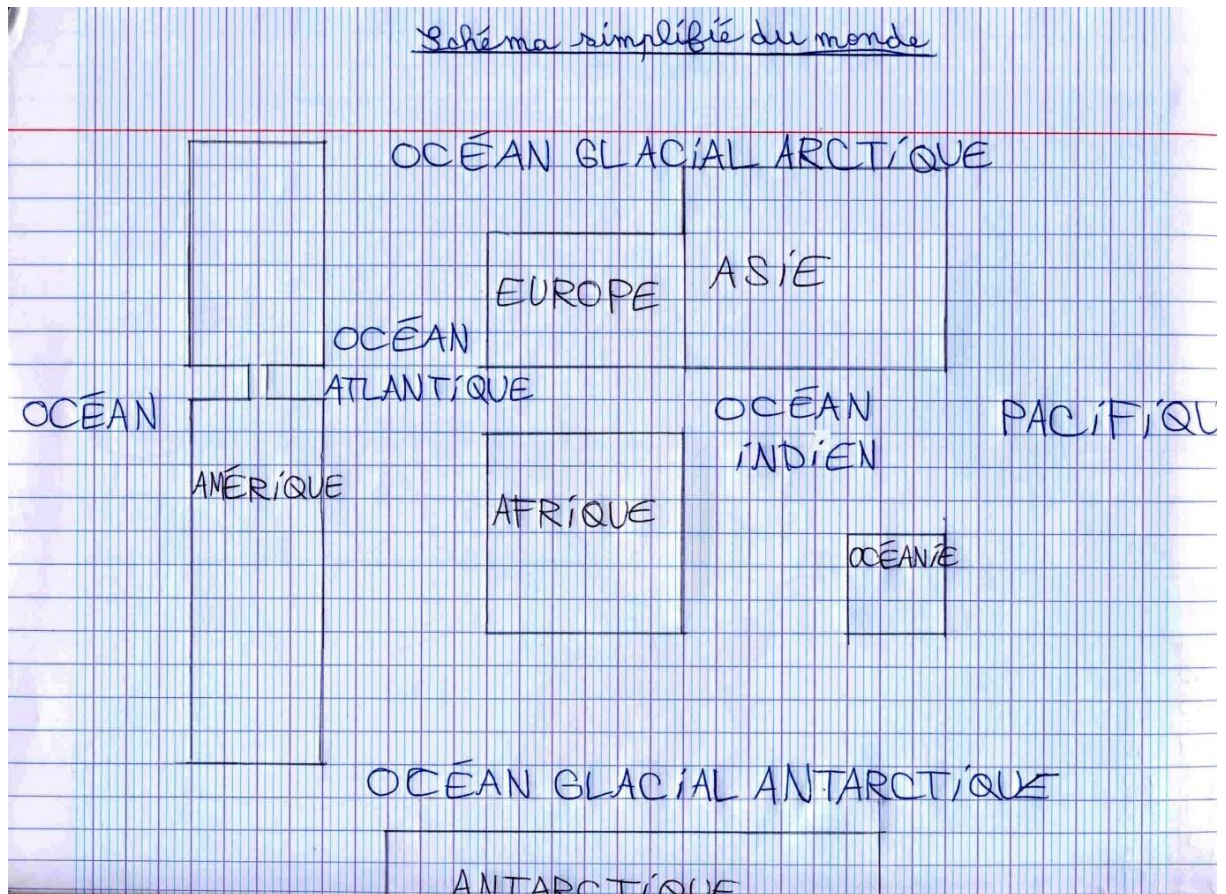 Schéma simplifié du monde
OCÉAN GLACIAL ARCTIQUE
EUROPE
ASIE
OCÉAN
ATLANTIQUE
OCÉAN
OCÉAN
INDIEN
PACIFIQU
AMÉRIQUE
AFRIQUE
OCÉANIE
OCÉAN GLACIAL ANTARCTIQUE
ANTARCTIQUE